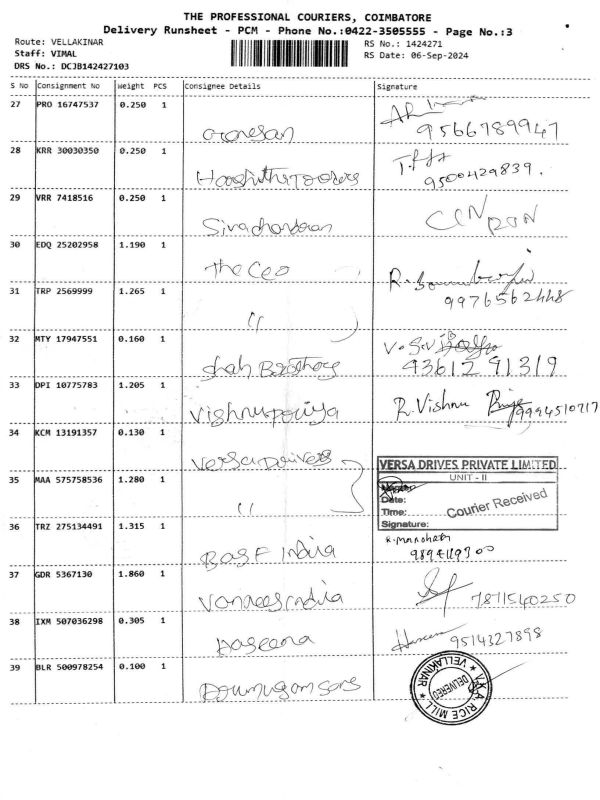 THE PROFESSIONAL COURIERS, COIMBATORE
Delivery Runsheet - PCM - Phone No.:0422-3505555 - Page No.:3
Route: VELLAKINAR
Staff: VIMAL
DRS No.: DCJB142427103
RS No.: 1424271
RS Date: 06-Sep-2024
S No Consignment No Weight PCS Consignee Details Signature
27 PRO 16747537 0.250 1 Ganesan
9566789947
28 KRR 30030350 0.250 1
9500429839.
29 VRR 7418516 0.250 1
30 EDQ 25202958 1.190 1 The Ceo
9976562448
31 TRP 2569999 1.265 1 "
32 MTY 17947551 0.160 1 Shah Brothers
93612 91319
33 DPI 10775783 1.205 1 Vishnupriya R. Vishnu Priya 9994510717
34 KCM 13191357 0.130 1 Versa Drives
35 MAA 575758536 1.280 1 "
VERSA DRIVES PRIVATE LIMITED
UNIT - II
Date:
Time:
Signature:
Courier Received
36 TRZ 275134491 1.315 1 BASF India
37 GDR 5367130 1.860 1
7871540250
38 IXM 507036298 0.305 1
9514327898
39 BLR 500978254 0.100 1
V.K.A RICE MILL * VELLAKINAR *
DELIVERED